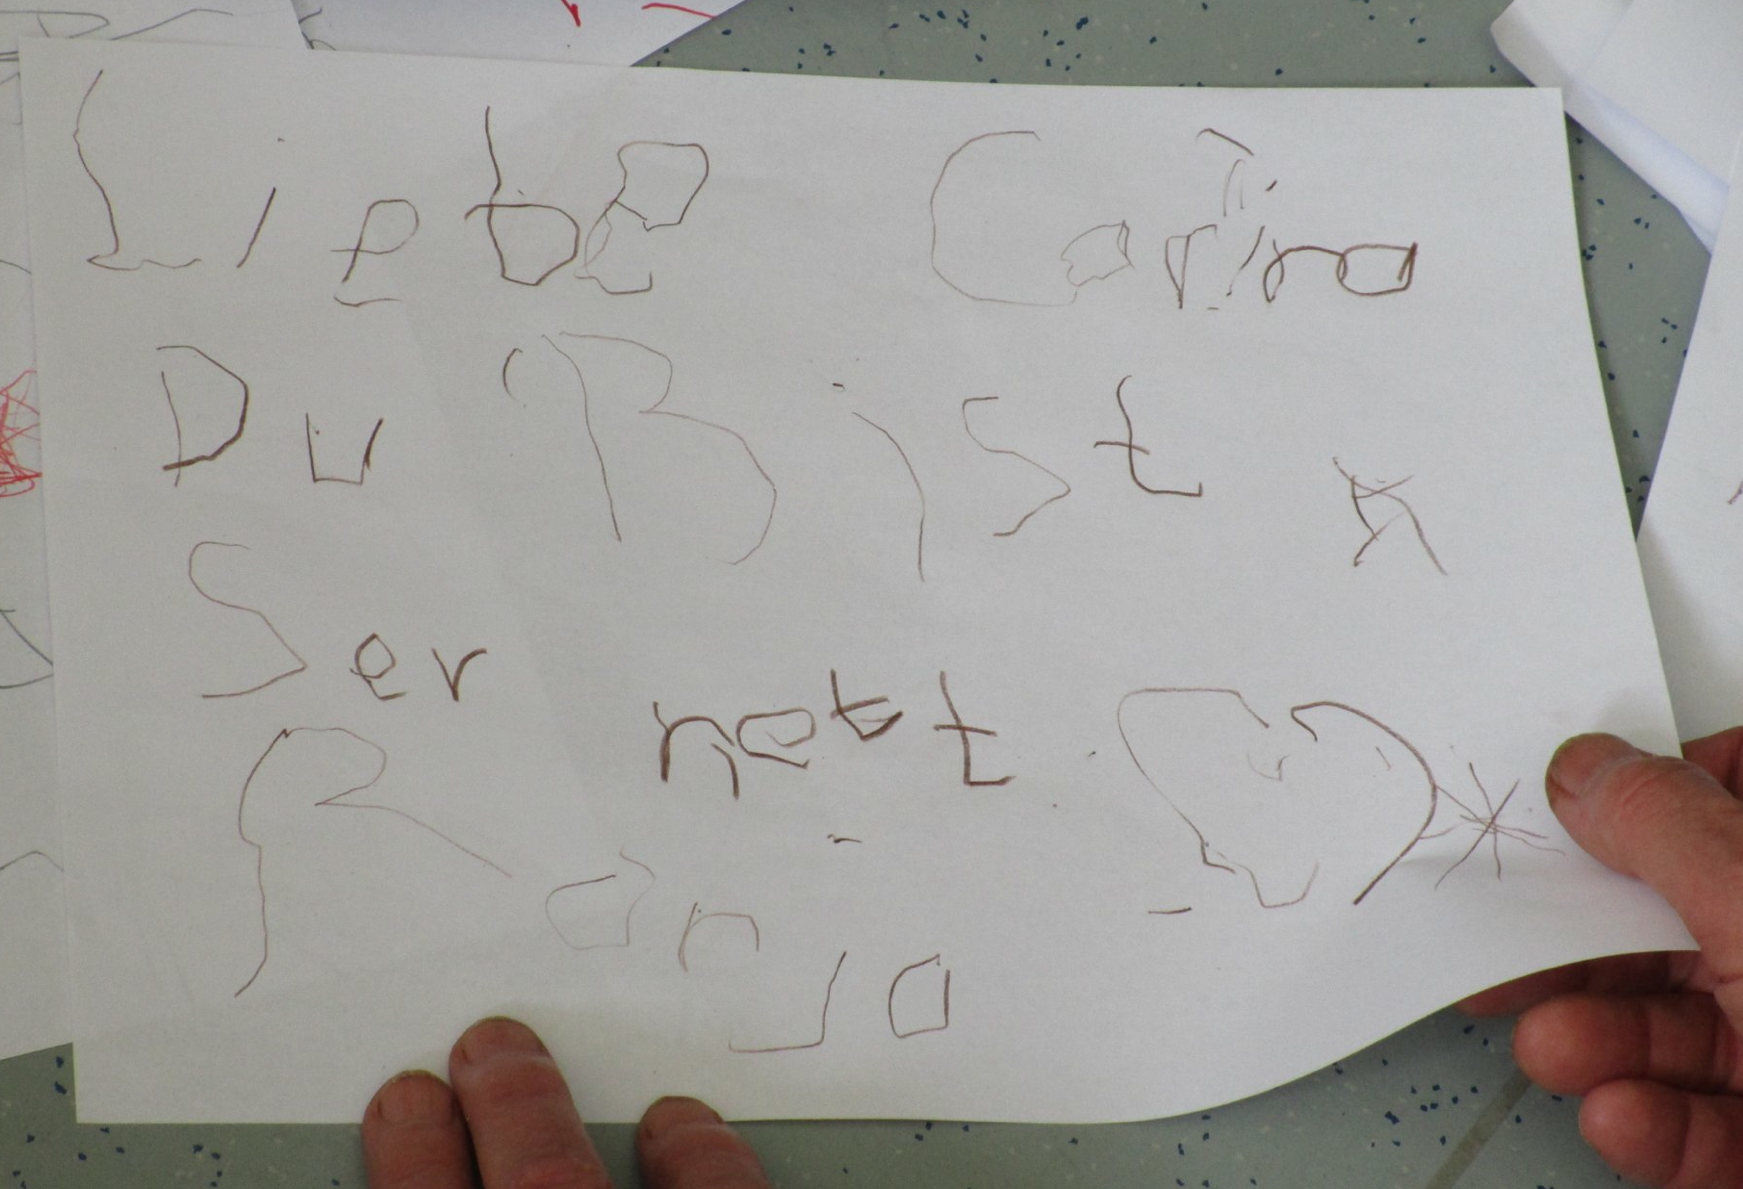 Liebe Carina
Du Bist
Ser nett
Ronja